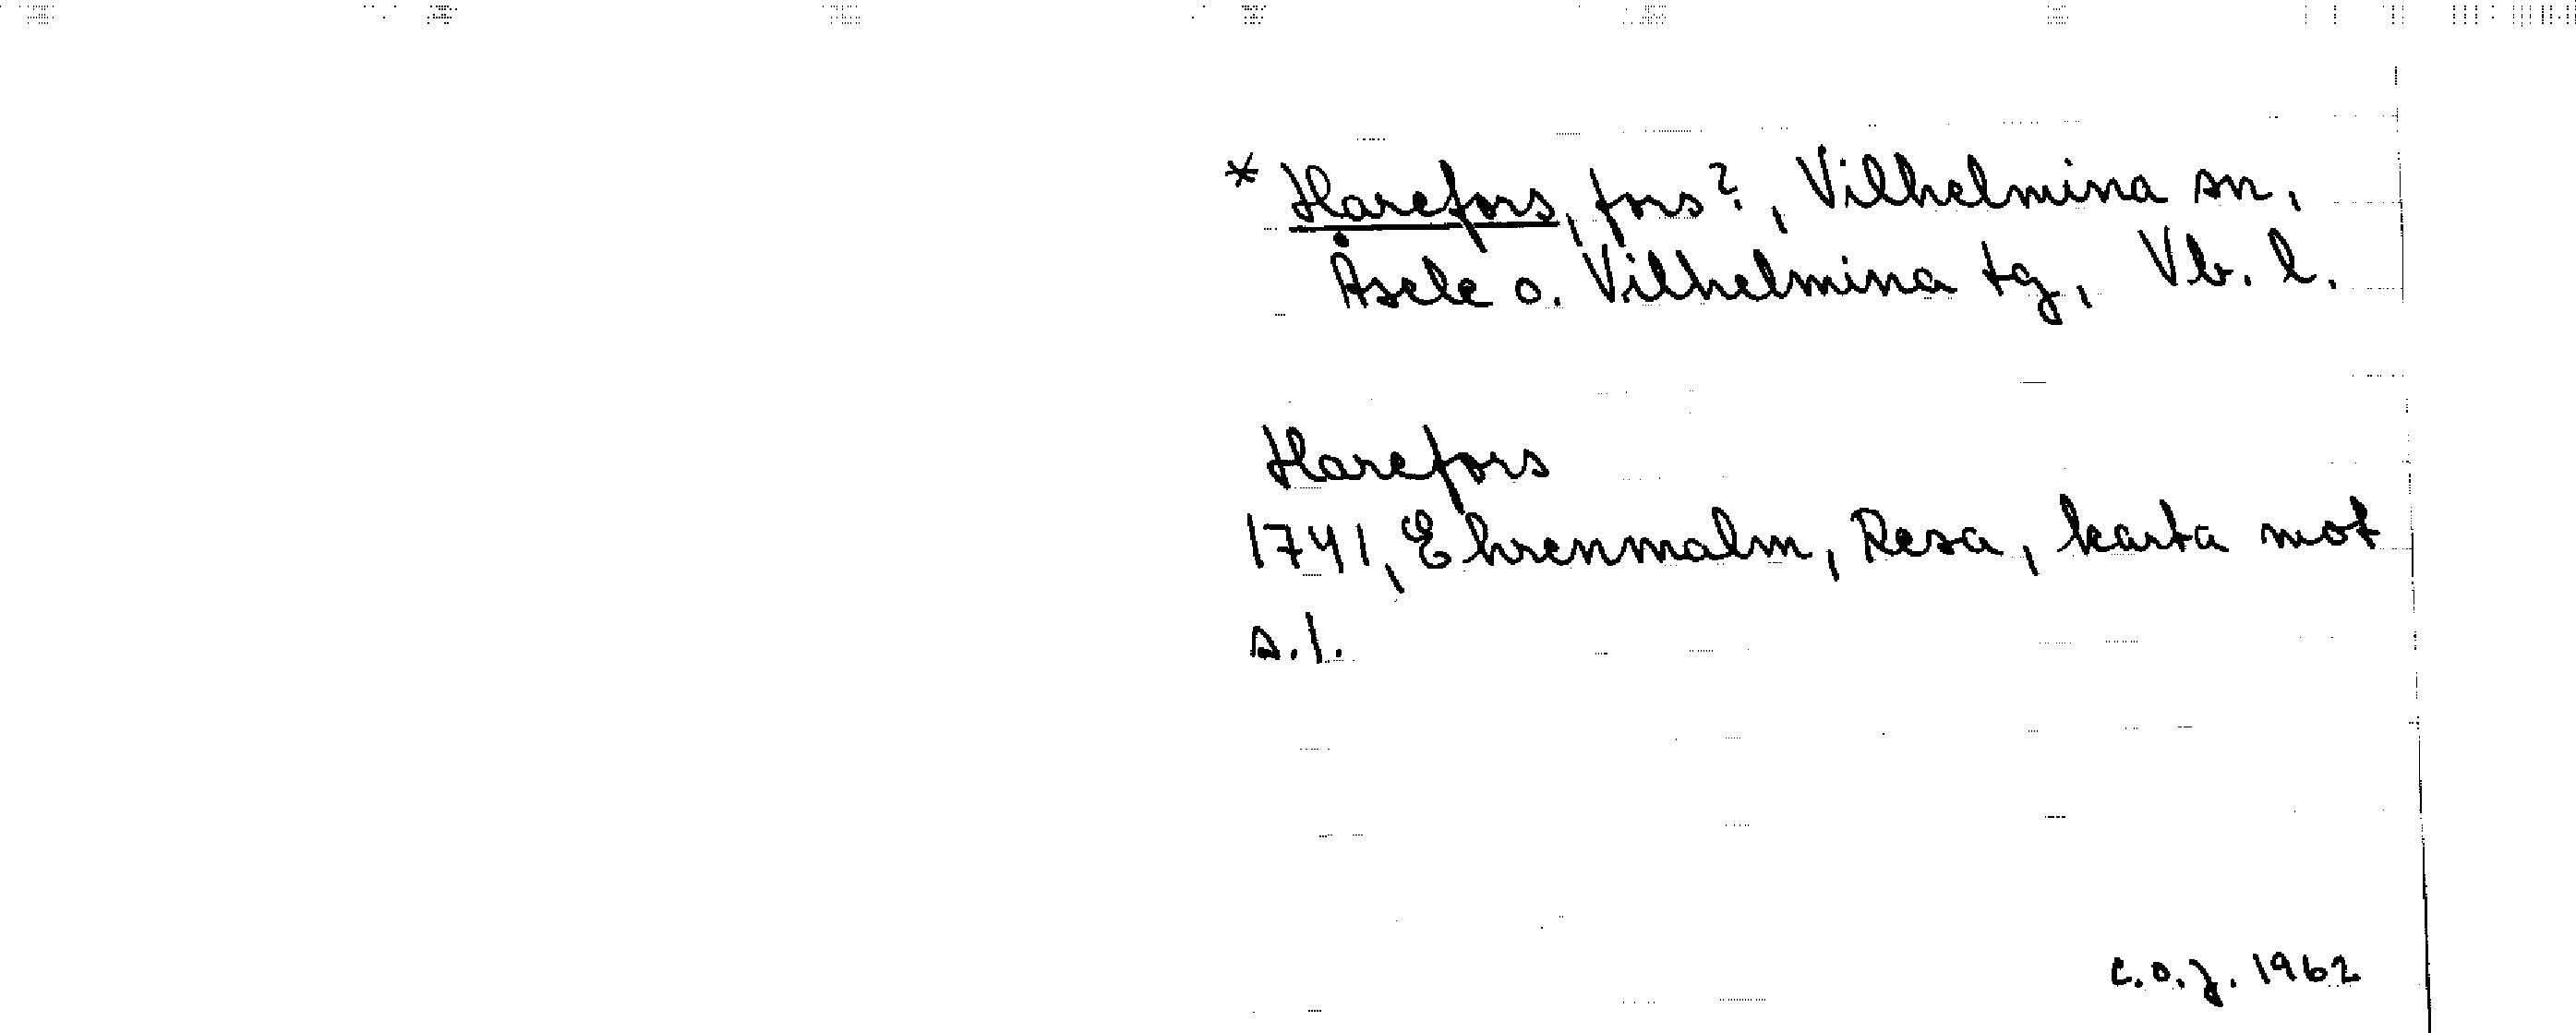 * Harefors, fors?, Vilhelmina sn,
Åsele o. Vilhelmina tg, Vb. l.
Harefors
1741, Ehrenmalm, Resa, karta mot
s. 1.
c.o.j. 1962